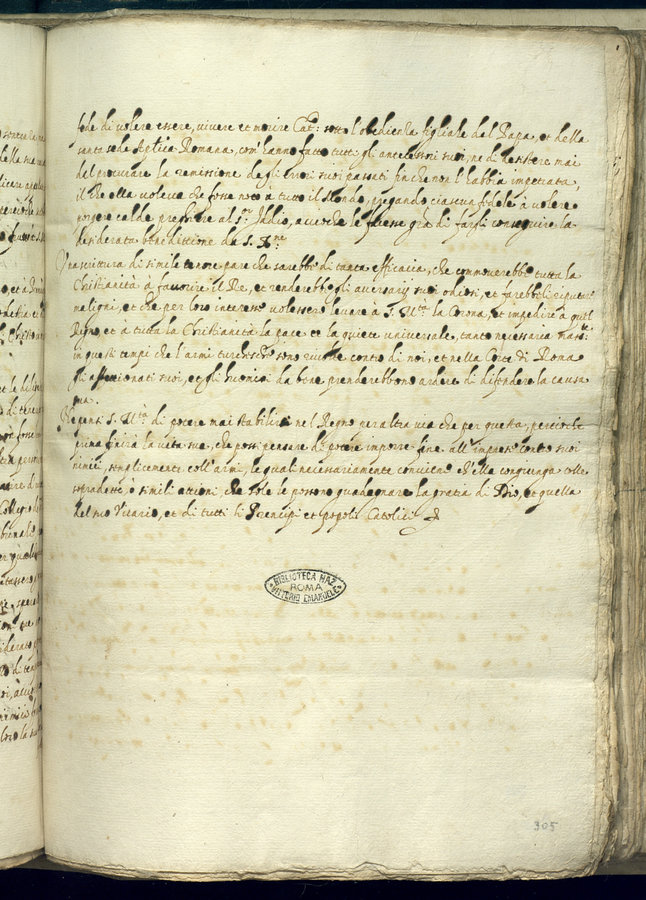 fede di volere essere, vivere et morire Cat: sotto l'obedienza figliale del Papa, et della
santa sede Aplica Romana, com' hanno fatto tutti gli antecessori suoi, ne di desistere mai
del procurare la remissione degli errori suoi passati fin che non l'habbia impetrata,
il che ella voleva che fosse noto à tutto il Mondo, pregando ciascun fidele à volere
porgere calde preghiere al s.r Iddio, acciochè le facesse gra di farsi conseguire la
desiderata benedittione da S. S.ne
Una scrittura di simile tenore pare che sarebbe di tanta efficacia, che commoverebbe tutta la
Christianità a favorire il Re, et renderebbe gli aversarij suoi odiosi, et farebbeli reputar
maligni, et che per loro interesse volessero levare à S. M.tà la Corona, et impedire à quel
Regno, et a tutta la Christianità la pace et la quiete universale, tanto necessaria mass:e
in questi tempi che l'armi turchesche sono rivolte contro di noi, et nella Corte di Roma
gli affettionati suoi, et gli huomini da bene prenderebbono ardire di difendere la causa
sua.
Ne pensi S. M.tà di potere mai stabilirsi nel Regno per altra via che per questa, perciochè
prima finirà la vita sua, che possi pensare di potere imporre fine all' imprese contro suoi
nimici, semplicemente coll'armi, le quali necessariamente conviene ch'ella congiunga colle
sopradette, ò simili attioni, che sole le possono guadagnare la gratia di Dio, et quella
del suo Vicario, et di tutti li Prencipi et popoli Catolici
BIBLIOTECA NAZ.
ROMA
VITTORIO EMANUELE
305